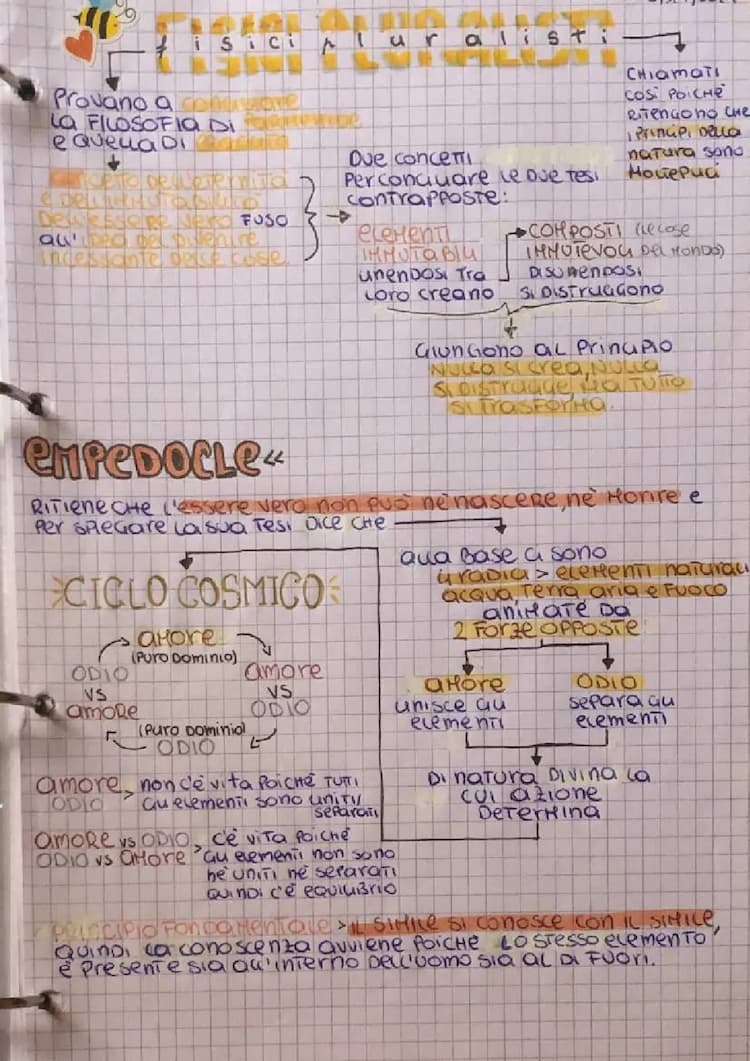 fisici pluralisti
CHIAMATI
COSÌ POICHÈ
RITENGONO CHE
I PRINCIPI DELLA
NATURA SONO
MOLTEPLICI
PROVANO A CONCILIARE
LA FILOSOFIA DI
E QUELLA DI
CONCETTO DELL'ETERNITÀ
E DELL'IMMUTABILITÀ
DELL'ESSERE VERO FUSO
ALL'IDEA DEL DIVENIRE
INCESSANTE DELLE COSE
DUE CONCETTI
PER CONCILIARE LE DUE TESI
CONTRAPPOSTE:
ELEMENTI
IMMUTABILI
UNENDOSI TRA
LORO CREANO
COMPOSTI (LE COSE
IMMUTEVOLI DEL MONDO)
DISUNENDOSI
SI DISTRUGGONO
GIUNGONO AL PRINCIPIO
NULLA SI CREA, NULLA
SI DISTRUGGE, MA TUTTO
SI TRASFORMA.
EMPEDOCLE
RITIENE CHE L'ESSERE VERO NON PUÒ NÈ NASCERE, NÈ MORIRE E
PER SPIEGARE LA SUA TESI DICE CHE
ALLA BASE CI SONO
4 RADICI > ELEMENTI NATURALI
ACQUA, TERRA, ARIA E FUOCO
ANIMATE DA
2 FORZE OPPOSTE
AMORE
UNISCE GLI
ELEMENTI
ODIO
SEPARA GLI
ELEMENTI
DI NATURA DIVINA LA
CUI AZIONE
DETERMINA
CICLO COSMICO
AMORE
(PURO DOMINIO)
ODIO
VS
AMORE
AMORE
VS
ODIO
(PURO DOMINIO)
ODIO
AMORE > NON C'È VITA POICHÈ TUTTI
ODIO GLI ELEMENTI SONO UNITI/
SEPARATI
AMORE VS ODIO > C'È VITA POICHÈ
ODIO VS AMORE GLI ELEMENTI NON SONO
NÈ UNITI NÈ SEPARATI
QUINDI C'È EQUILIBRIO
PRINCIPIO FONDAMENTALE > IL SIMILE SI CONOSCE CON IL SIMILE,
QUINDI LA CONOSCENZA AVVIENE POICHÈ LO STESSO ELEMENTO
È PRESENTE SIA ALL'INTERNO DELL'UOMO SIA AL DI FUORI.